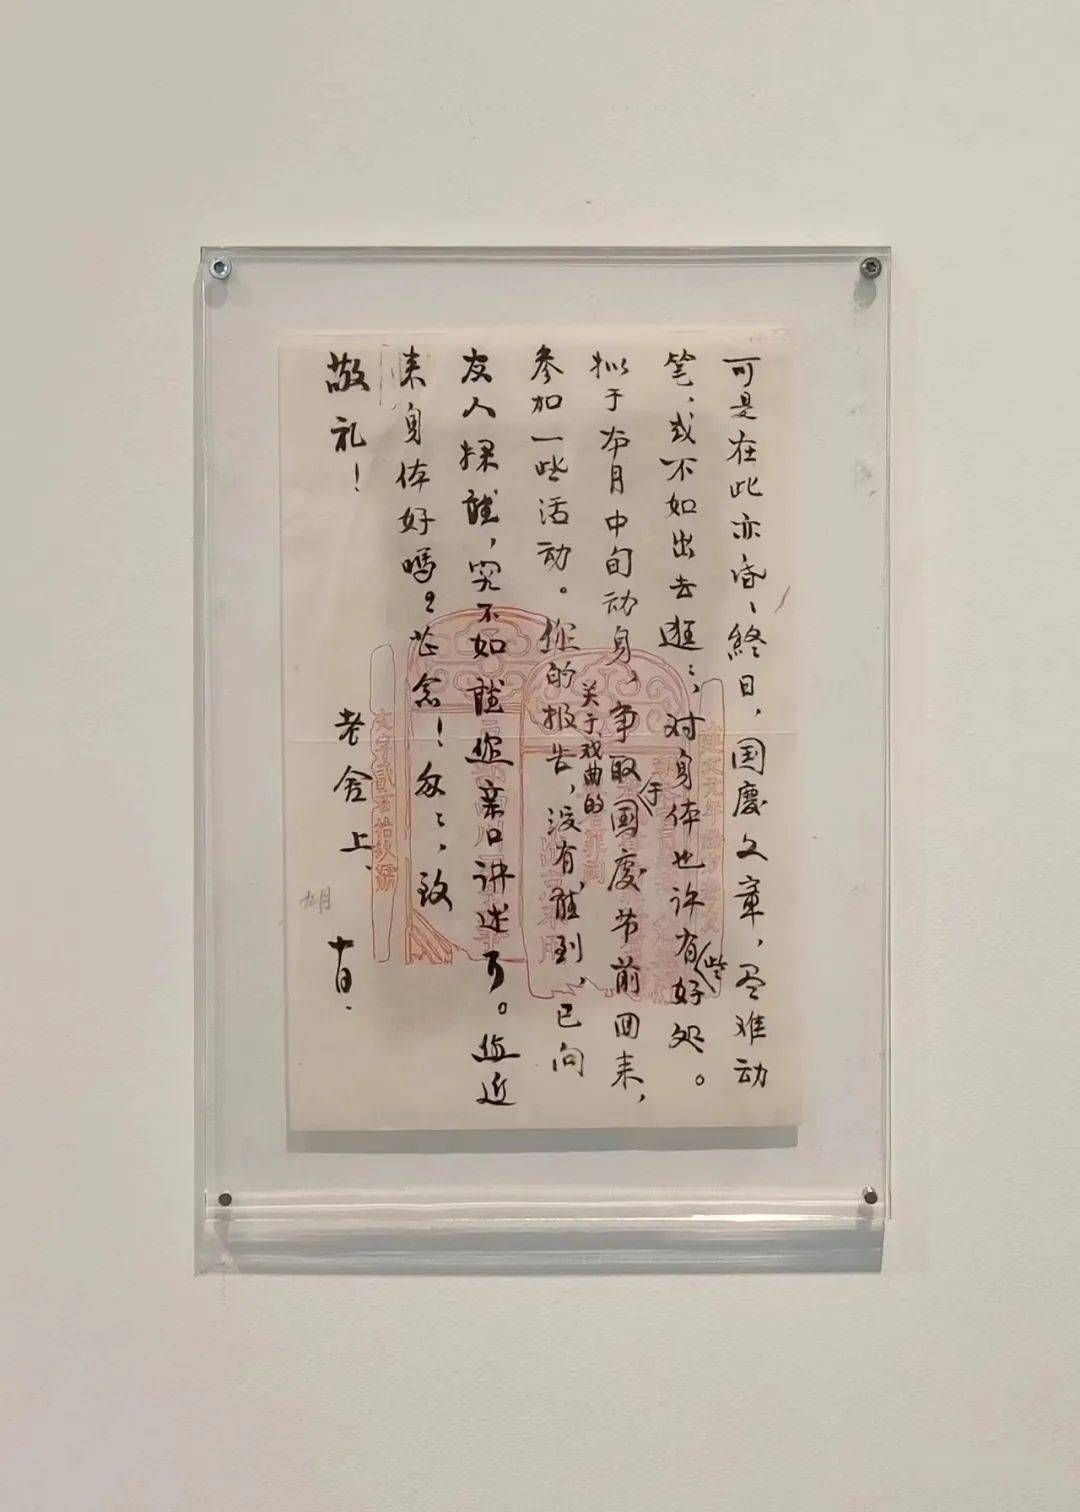 可是在此亦昏、終日，国慶文章，尽难动
笔，或不如出去逛：，对身体也许有些好处。
拟于本月中旬动身，争取于国慶节前回来，
参加一些活动。您的关于戏曲的报告，没有听到，已向
友人探听，究不如听您亲口讲述了。您近
来身体好嗎？芒念！匆：，致
敬礼！
老舍上、
九月
十日.
文字貳百拾玖號